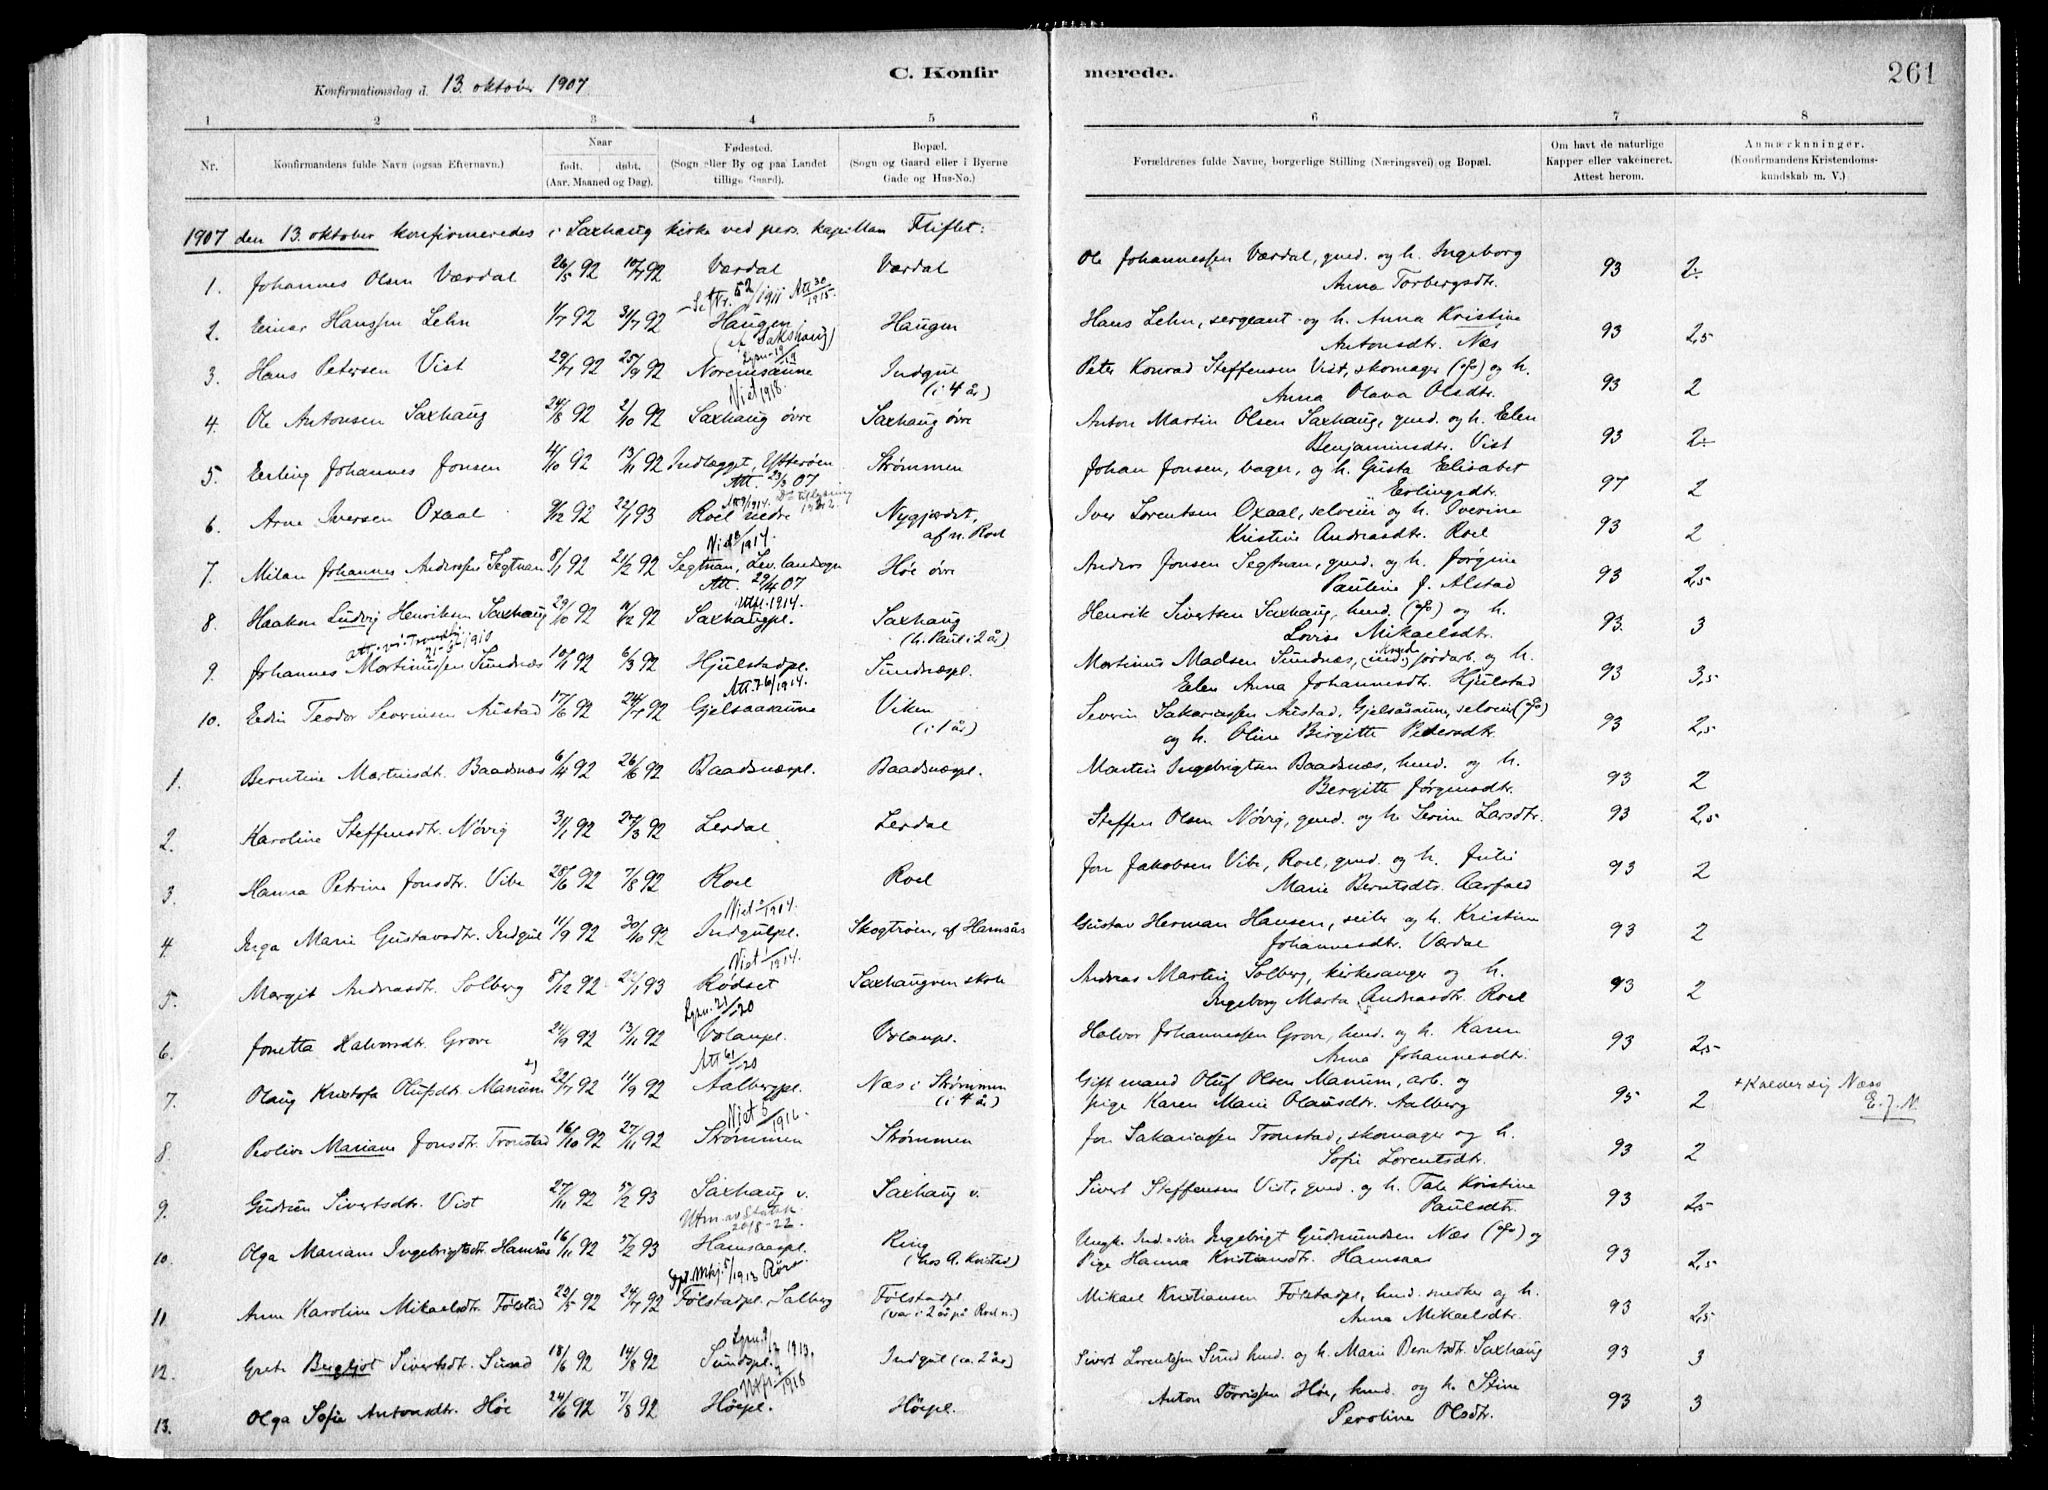 C. Konfirmerede.
261
Konfirmationsdag d. 13. oktober 1907
1 2 3 4 5 6 7 8
Nr. Konfirmandens fulde Navn (ogsaa Efternavn.) Naar født. døbt. (Aar. Maaned og Dag). Fødested. (Sogn eller By og paa Landet tillige Gaard). Bopæl. (Sogn og Gaard eller i Byerne Gade og Hus-No.) Forældrenes fulde Navne, borgerlige Stilling (Næringsvei) og Bopæl. Om havt de naturlige Kapper eller vakcineret. Attest herom. Anmærkninger. (Konfirmandens Kristendomskundskab m. V.)
1907 den 13. oktober konfirmeredes i Saxhaug kirke ved pers. kapellan Fliflet:
1. Johannes Olsen Værdal 26/5 92 10/7 92 Værdal Værdal Ole Johannessen Værdal, gmd. og h. Ingeborg Anna Torbergsdtr. 93 2
2. Einar Hanssen Lehn 1/7 92 31/7 92 Haugen Haugen Hans Lehn, sergeant og h. Anna Kristine Antonsdtr. Næs 93 2,5
3. Hans Petersen Vist 29/7 92 25/9 92 Noremsaunne Indgul (i 4 år) Peter Konrad Steffensen Vist, skomager og h. Anna Olava Olsdtr. 93 2
4. Ole Antonsen Saxhaug 24/8 92 2/10 92 Saxhaug övre Saxhaug övre Anton Martin Olsen Saxhaug, gmd. og h. Elen Benjaminsdtr. Vist 93 2
5. Erling Johannes Jonsen 4/10 92 13/11 92 Indlægget, Ytterøen Strømmen Johan Jonsen, bager, og h. Gusta Elisabet Erlingsdtr. 97 2
6. Arne Iversen Oxaal 9/12 92 22/1 93 Roel nedre Nygjærdet, af n. Roel Iver Lorentsen Oxaal, selveier og h. Overine Kristine Andreasdtr. Roel 93 2
7. Milan Johannes Anderssen Segtnan 8/1 92 21/2 92 Segtnan, Lev. landsogn Höe övre Anders Jonsen Segtnan, gmd. og h. Jørgine Pauline J. Alstad 93 2,5
8. Haakon Ludvig Henriksen Saxhaug 29/10 92 11/12 92 Saxhaugpl. Saxhaug (h. Paul i 2 år) Henrik Sivertsen Saxhaug, husmd. og h. Lovise Mikaelsdtr. 93 3
9. Johannes Martinussen Sundnæs 10/1 92 6/3 92 Hjulstadpl. Sundnæspl. Martinus Madsen Sundnæs, jordarb. og h. Elen Anna Johannesdtr. Hjulstad 93 3,5
10. Edin Teodor Severinsen Austad 17/6 92 24/7 92 Gjelsaasaune Viken (i 1 år) Severin Sakariassen Austad, Gjelsåsaun, selveier og h. Oline Birgitte Pedersdtr. 93 2,5
1. Berntine Martinsdt. Baadsnæs 6/4 92 26/6 92 Baadsnæspl. Baadsnæspl. Martin Ingebrigtsen Baadsnæs, husmd. og h. Bergitte Jørginsdtr. 93 2
2. Karoline Steffensdtr. Nøvig 31/1 92 27/3 92 Lerdal Lerdal Steffen Olsen Nøvig, gmd. og h. Serine Larsdtr. 93 2,5
3. Hanna Petrine Jonsdtr. Vibe 28/6 92 7/8 92 Roel Roel Jon Jakobsen Vibe, Roel, gmd. og h. Julie Marie Berntsdtr. Aarfald 93 2
4. Inga Marie Gustavsdtr. Indgul 11/9 92 30/10 92 Indgulpl. Skogtrøen, af Hamsås Gustav Herman Hansen, seiler og h. Kristine Johannesdtr. Værdal 93 2
5. Margit Andreasdtr. Solberg 8/12 92 22/1 93 Rødset Saxhaugven skole Andreas Martin Solberg, kirkesanger og h. Ingeborg Marta Andreasdtr. Roel 93 2
6. Jonetta Halvorsdtr. Grove 24/9 92 13/11 92 Volanpl. Volanpl. Halvor Johannessen Grove, husmd. og h. Karen Anna Johannesdtr. 93 2,5
7. Olaug Kristofa Olufsdtr. Manum +) 22/7 92 11/9 92 Aalbergpl. Næs i Strømmen (i 4 år) Gift mand Oluf Olsen Manum, arb. og pige Karen Marie Olausdtr. Aalberg 95 2 + Kalder sig Næss E. J. N.
8. Peoline Mariane Jonsdtr. Tronstad 16/10 92 27/11 92 Strømmen Strømmen Jon Sakariassen Tronstad, skomager og h. Sofie Lorentsdtr. 93 2
9. Gudrun Sivertsdtr. Vist 27/11 92 5/2 93 Saxhaug v. Saxhaug v. Sivert Steffensen Vist, gmd. og h. Tale Kristine Paulsdtr. 93 2,5
10. Olga Mariane Ingebrigtsdtr. Hamsås 16/11 92 5/2 93 Hamsaaspl. Ring (hos A. Kvistad) Ungk. Ingebrigt Gudmundsen Næs og Pige Hanna Kristiansdtr. Hamsaas 93 2,5
11. Anne Karoline Mikaelsdtr. Følstad 22/5 92 24/7 92 Følstadpl., Salberg Følstadpl. (var i 2 år på Roel n.) Mikael Kristiansen Følstadpl, husmd. snedker og h. Anna Mikaelsdtr. 93 2,5
12. Grete Bergljot Sivertsdt. Sund 18/6 92 14/8 92 Sundspl. Indgul (ca. 2 år) Sivert Lorentssen Sund husmd. og h. Marie Berntsdt. Saxhaug 93 3
13. Olga Sofie Antonsdtr. Höe 24/6 92 7/8 92 Höepl. Höepl. Anton Tørrissen Höe, husmd. og h. Stine Peroline Olsdtr. 93 3